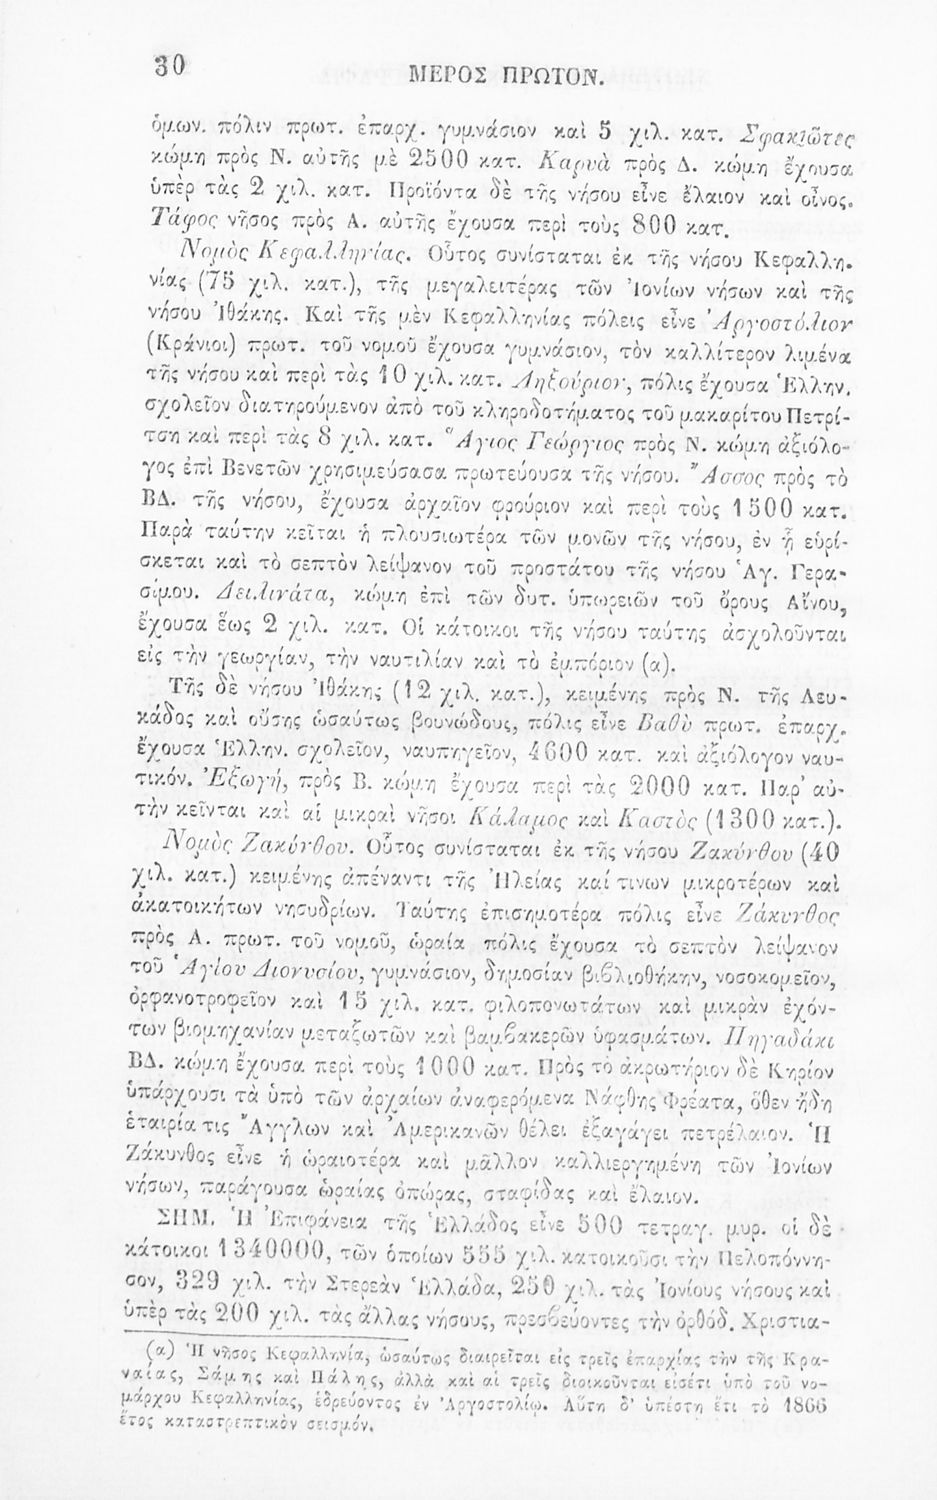 30
ΜΕΡΟΣ ΠΡΩΤΟΝ.
ὁμων. πόλιν πρωτ. ἐπαρχ. γυμνάσιον καὶ 5 χιλ. κατ. Σφακιῶτες
κώμη πρὸς Ν. αὐτῆς μὲ 2500 κατ. Καρυὰ πρὸς Δ. κώμη ἔχουσα
ὑπὲρ τὰς 2 χιλ. κατ. Προϊόντα δὲ τῆς νήσου εἶνε ἔλαιον καὶ οἶνος.
Τάφος νῆσος πρὸς Α. αὐτῆς ἔχουσα περὶ τοὺς 800 κατ.
Νομὸς Κεφαλληνίας. Οὗτος συνίσταται ἐκ τῆς νήσου Κεφαλλη-
νίας (75 χιλ. κατ.), τῆς μεγαλειτέρας τῶν Ἰονίων νήσων καὶ τῆς
νήσου Ἰθάκης. Καὶ τῆς μὲν Κεφαλληνίας πόλεις εἶνε Ἀργοστόλιον
(Κράνιοι) πρωτ. τοῦ νομοῦ ἔχουσα γυμνάσιον, τὸν καλλίτερον λιμένα
τῆς νήσου καὶ περὶ τὰς 10 χιλ. κατ. Ληξούριον, πόλις ἔχουσα Ἑλλην.
σχολεῖον διατηρούμενον ἀπὸ τοῦ κληροδοτήματος τοῦ μακαρίτου Πετρί-
τση καὶ περὶ τὰς 8 χιλ. κατ. Ἅγιος Γεώργιος πρὸς Ν. κώμη ἀξιόλο-
γος ἐπὶ Βενετῶν χρησιμεύσασα πρωτεύουσα τῆς νήσου. Ἄσσος πρὸς τὸ
ΒΔ. τῆς νήσου, ἔχουσα ἀρχαῖον φρούριον καὶ περὶ τοὺς 1500 κατ.
Παρὰ ταύτην κεῖται ἡ πλουσιωτέρα τῶν μονῶν τῆς νήσου, ἐν ᾗ εὑρί-
σκεται καὶ τὸ σεπτὸν λείψανον τοῦ προστάτου τῆς νήσου Ἁγ. Γερα-
σίμου. Δειλινάτα, κώμη ἐπὶ τῶν δυτ. ὑπωρειῶν τοῦ ὄρους Αἴνου,
ἔχουσα ἕως 2 χιλ. κατ. Οἱ κάτοικοι τῆς νήσου ταύτης ἀσχολοῦνται
εἰς τὴν γεωργίαν, τὴν ναυτιλίαν καὶ τὸ ἐμπόριον (α).
Τῆς δὲ νήσου Ἰθάκης (12 χιλ. κατ.), κειμένης πρὸς Ν. τῆς Λευ-
κάδος καὶ οὔσης ὡσαύτως βουνώδους, πόλις εἶνε Βαθὺ πρωτ. ἐπαρχ.
ἔχουσα Ἑλλην. σχολεῖον, ναυπηγεῖον, 4600 κατ. καὶ ἀξιόλογον ναυ-
τικόν. Ἐξωγή, πρὸς Β. κώμη ἔχουσα περὶ τὰς 2000 κατ. Παρ' αὐ-
τὴν κεῖνται καὶ αἱ μικραὶ νῆσοι Κάλαμος καὶ Καστὸς (1300 κατ.).
Νομὸς Ζακύνθου. Οὗτος συνίσταται ἐκ τῆς νήσου Ζακύνθου (40
χιλ. κατ.) κειμένης ἀπέναντι τῆς Ἠλείας καί τινων μικροτέρων καὶ
ἀκατοικήτων νησυδρίων. Ταύτης ἐπισημοτέρα πόλις εἶνε Ζάκυνθος
πρὸς Α. πρωτ. τοῦ νομοῦ, ὡραία πόλις ἔχουσα τὸ σεπτὸν λείψανον
τοῦ Ἁγίου Διονυσίου, γυμνάσιον, δημοσίαν βιβλιοθήκην, νοσοκομεῖον,
ὀρφανοτροφεῖον καὶ 15 χιλ. κατ. φιλοπονωτάτων καὶ μικρὰν ἐχόν-
των βιομηχανίαν μεταξωτῶν καὶ βαμβακερῶν ὑφασμάτων. Πηγαδάκι
ΒΔ. κώμη ἔχουσα περὶ τοὺς 1000 κατ. Πρὸς τὸ ἀκρωτήριον δὲ Κηρίον
ὑπάρχουσι τὰ ὑπὸ τῶν ἀρχαίων ἀναφερόμενα Νάφθης Φρέατα, ὅθεν ἤδη
ἑταιρία τις Ἄγγλων καὶ Ἀμερικανῶν θέλει ἐξαγάγει πετρέλαιον. Ἡ
Ζάκυνθος εἶνε ἡ ὡραιοτέρα καὶ μᾶλλον καλλιεργημένη τῶν Ἰονίων
νήσων, παράγουσα ὡραίας ὀπώρας, σταφίδας καὶ ἔλαιον.
ΣΗΜ. Ἡ Ἐπιφάνεια τῆς Ἑλλάδος εἶνε 500 τετραγ. μυρ. οἱ δὲ
κάτοικοι 1340000, τῶν ὁποίων 555 χιλ. κατοικοῦσι τὴν Πελοπόννη-
σον, 329 χιλ. τὴν Στερεὰν Ἑλλάδα, 250 χιλ. τὰς Ἰονίους νήσους καὶ
ὑπὲρ τὰς 200 χιλ. τὰς ἄλλας νήσους, πρεσβεύοντες τὴν ὀρθόδ. Χριστια-
(α) Ἡ νῆσος Κεφαλληνία, ὡσαύτως διαιρεῖται εἰς τρεῖς ἐπαρχίας τὴν τῆς Κρα-
ναίας, Σάμης καὶ Πάλης, ἀλλὰ καὶ αἱ τρεῖς διοικοῦνται εἰσέτι ὑπὸ τοῦ νο-
μάρχου Κεφαλληνίας, ἑδρεύοντος ἐν Ἀργοστολίῳ. Αὕτη δ' ὑπέστη ἔτι τὸ 1866
ἔτος καταστρεπτικὸν σεισμόν.